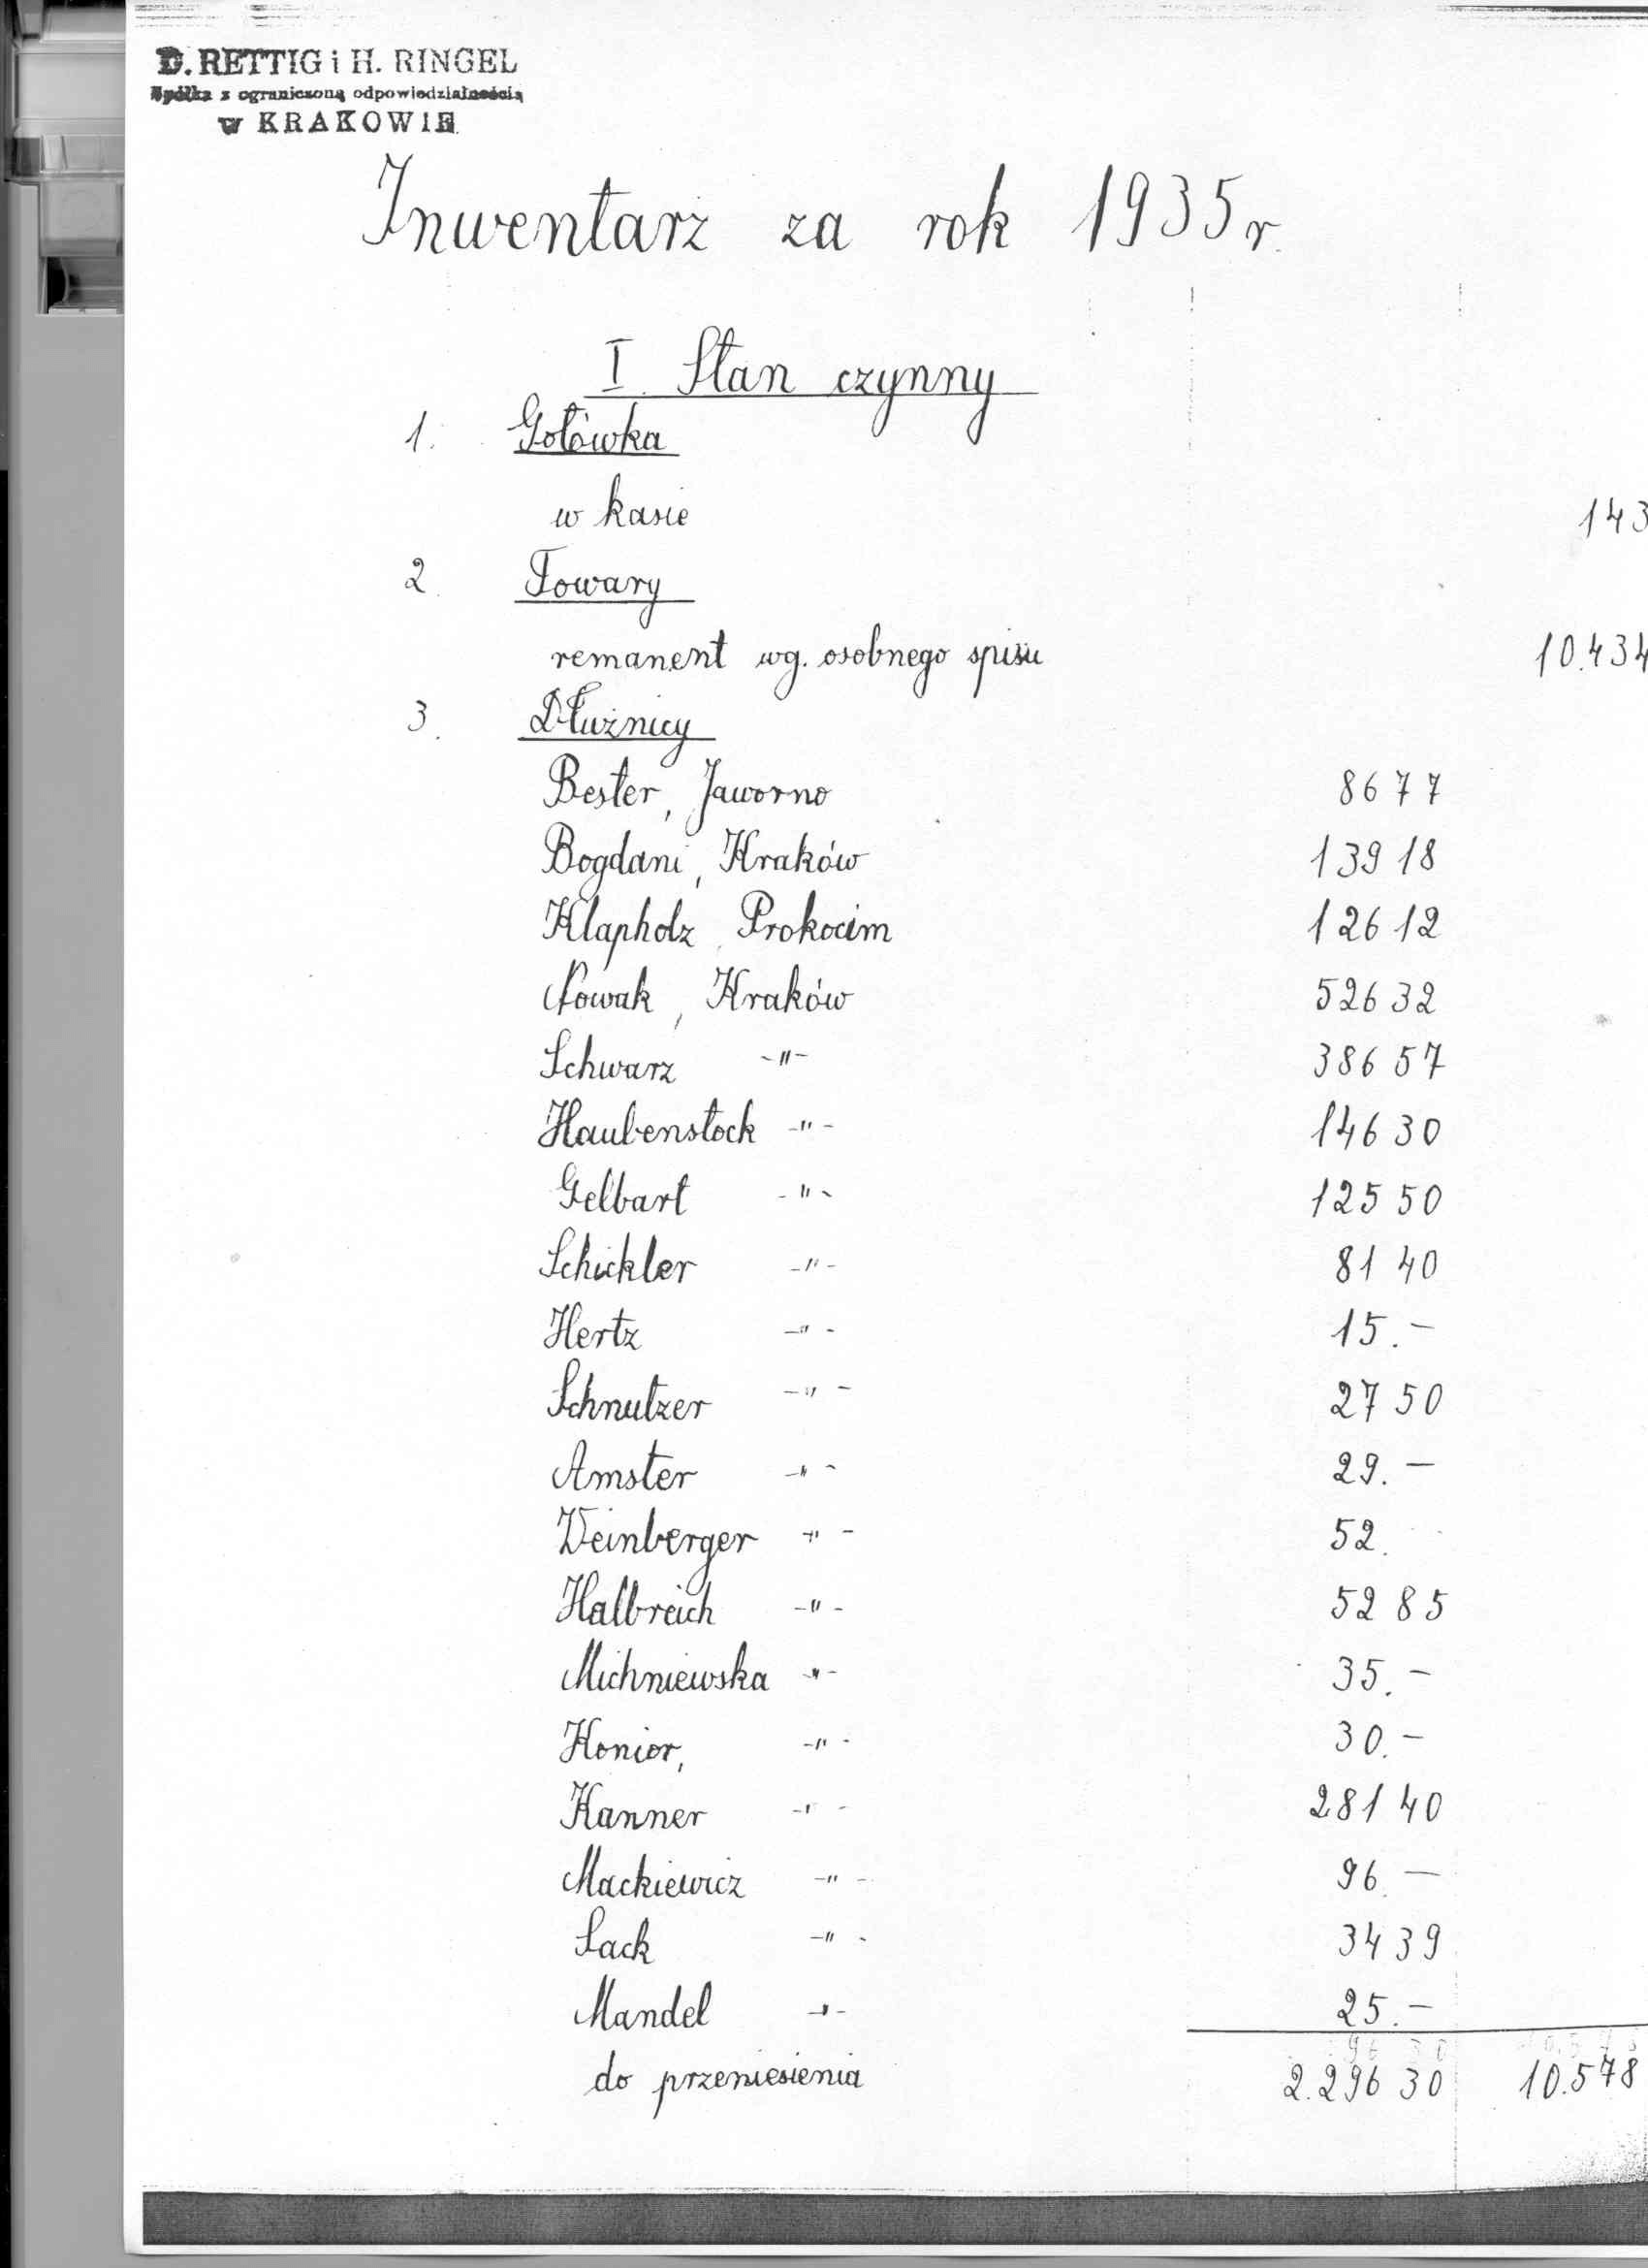 D. RETTIG i H. RINGEL
Spółka z ograniczoną odpowiedzialnością
w KRAKOWIE.
Inwentarz za rok 1935 r.
I. Stan czynny
1. Gotówka
w kasie 143
2. Towary
remanent wg. osobnego spisu 10.434
3. Dłużnicy
Bester, Jaworno 86 77
Bogdani, Kraków 139 18
Klapholz, Prokocim 126 12
Nowak, Kraków 526 32
Schwarz -"- 386 57
Haubenstock -"- 146 30
Gelbart -"- 125 50
Schickler -"- 81 40
Hertz -"- 15.-
Schnutzer -"- 27 50
Amster -"- 29.-
Weinberger -"- 52.
Halbreich -"- 52 85
Michniewska -"- 35.-
Konior, -"- 30.-
Kanner -"- 281 40
Mackiewicz -"- 96.-
Sack -"- 34 39
Mandel -"- 25.-
do przeniesienia 2.296 30 10.578